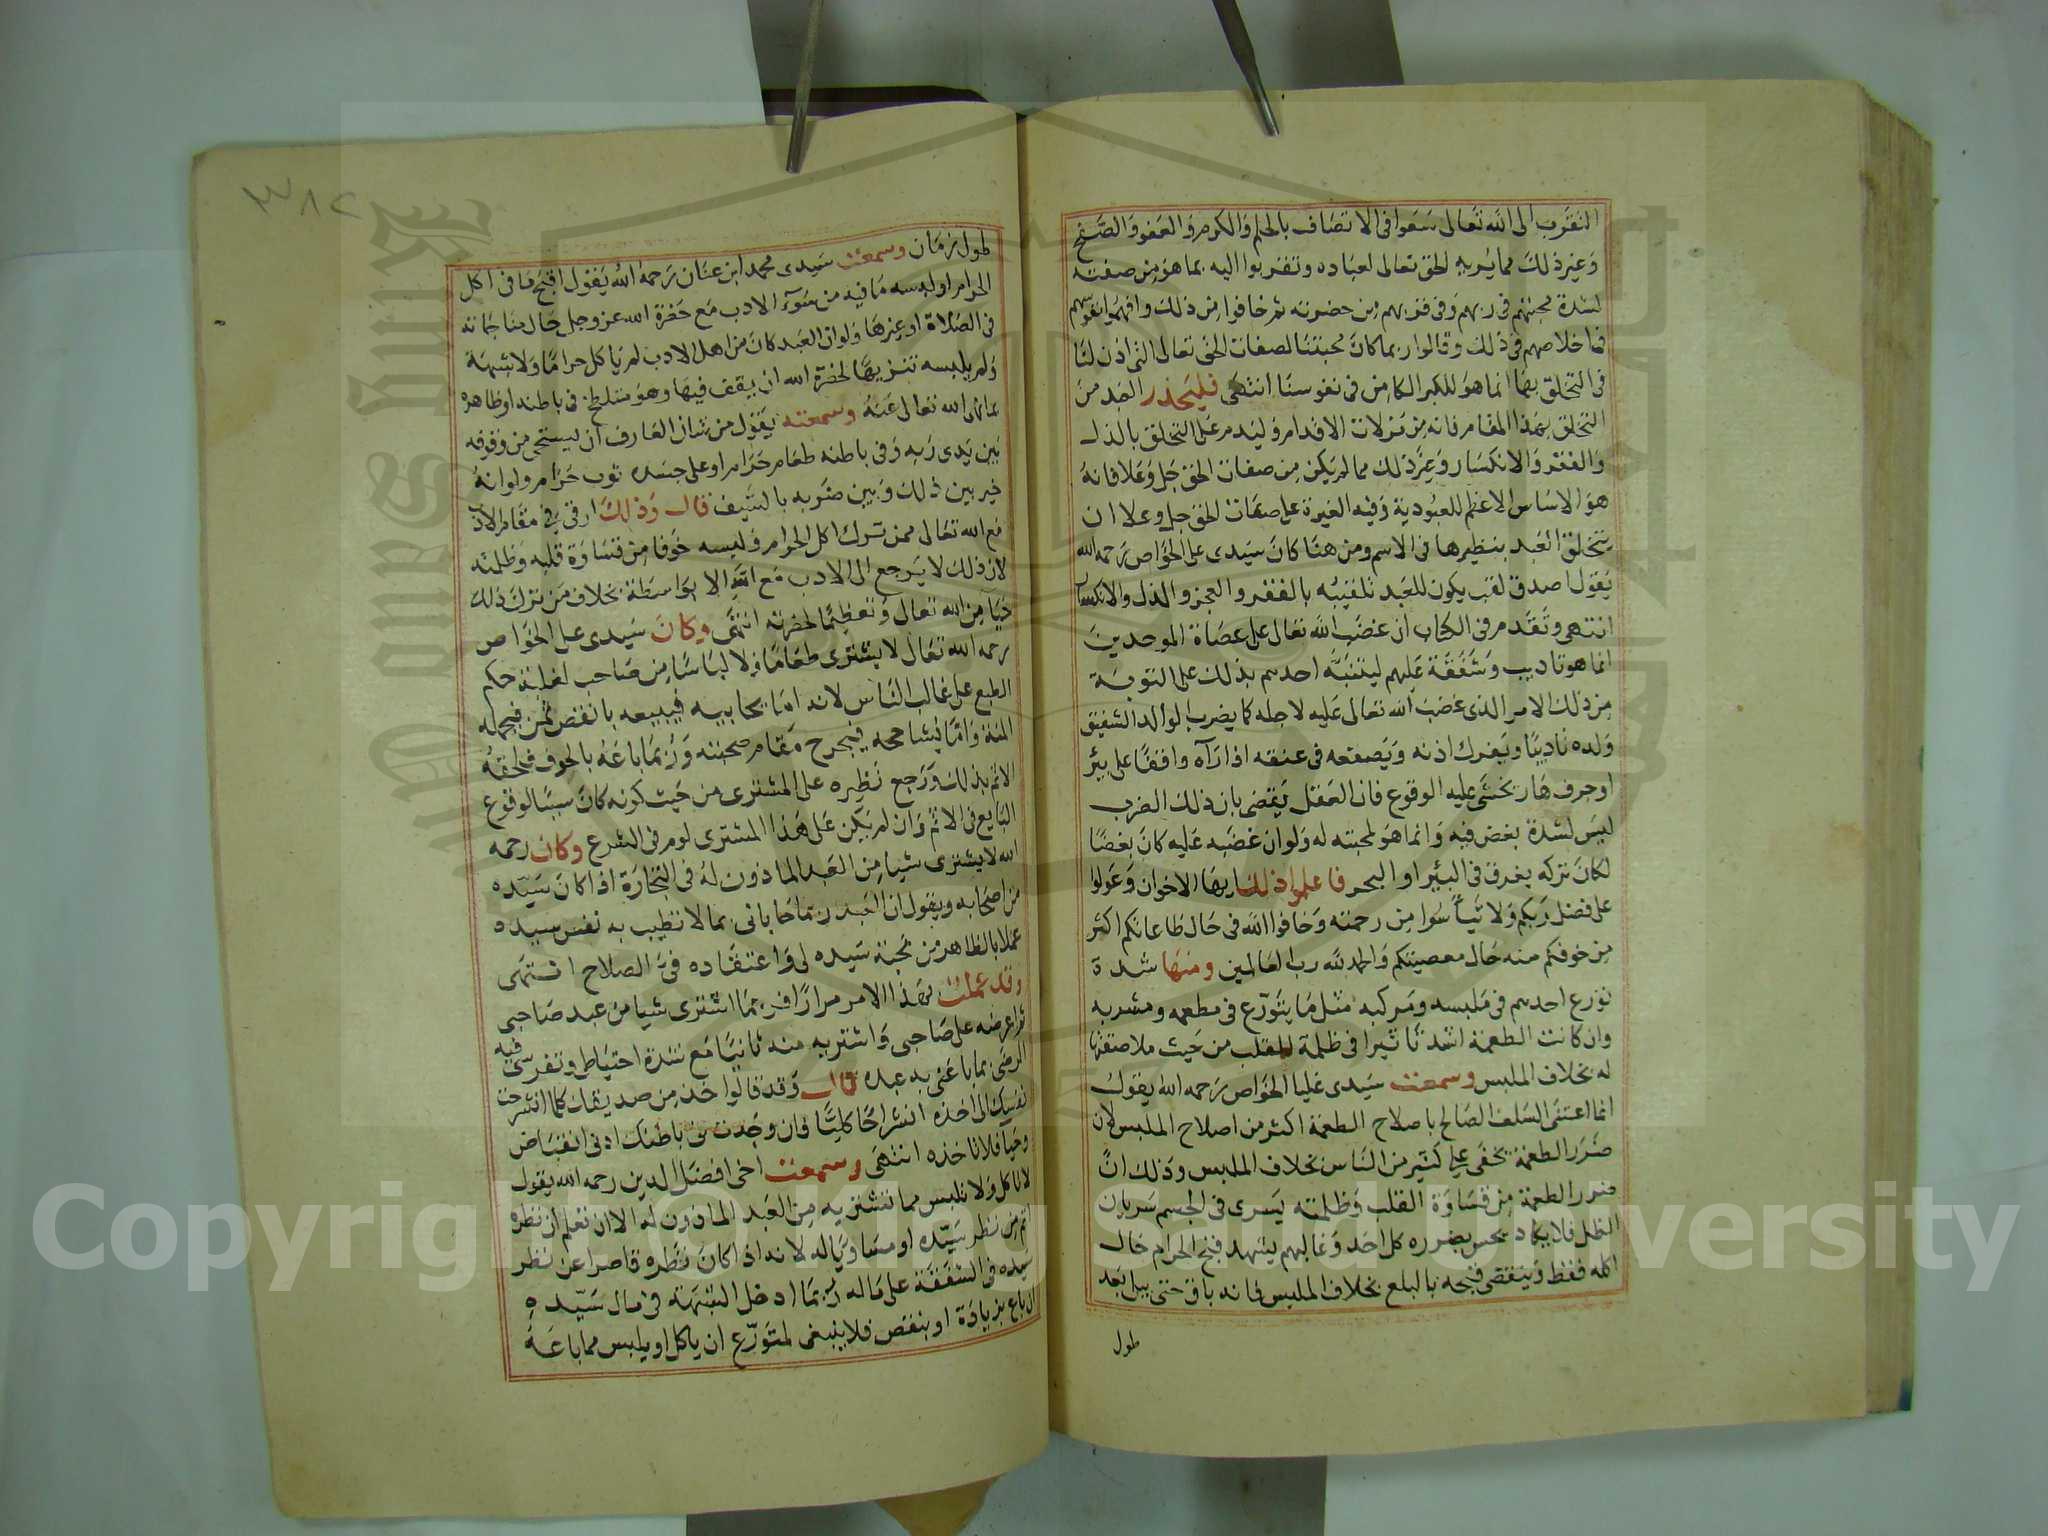 التقرب الى الله تعالى سعوا فى الاتصاف بالحلم والكرم والعفو والصفح
وغير ذلك مما يريد الحق تعالى لعباده وتقربوا اليه بما هو من صفته
لشدة محبتهم فى ربهم وفى قربهم من حضرته ثم خافوا من ذلك واتهموا نفوسهم
فى اخلاصهم فى ذلك وقالوا ربما كان محبتنا لصفات الحق تعالى التى اذن لنا
فى التخلق بها انما هو للكبر الكامن فى نفوسنا انتهى فليحذر العبد من
التخلق بهذا المقام فانه من مزلات الاقدام وليدم على التخلق بالذل
والفقر والانكسار وغير ذلك مما لم يكن من صفات الحق جل وعلا فانه
هو الاساس الاعظم للعبودية وفيه الغيرة على صفات الحق جل وعلا ان
يتخلق العبد بنظيرها فى الاسم ومن هنا كان سيدى على الخواص رحمه الله
يقول اصدق لقب يكون للعبد تلقيبه بالفقر والعجز والذل والانكسار
انتهى وتقدم فى الكتاب ان غضب الله تعالى على عصاة الموحدين
انما هو تاديب وشفقة عليهم ليتنبه احدهم بذلك على التوبة
من ذلك الامر الذى غضب الله تعالى عليه لاجله كما يضرب الوالد الشفيق
ولده تاديبا ويفرك اذنه ويصفعه فى عنقه اذا رآه واقفا على بير
او جرف هار يخشى عليه الوقوع فان العقل يقضى بان ذلك الضرب
ليس لشدة بغض فيه وانما هو لمحبته له ولو ان غضبه عليه كان بغضا
لكان تركه يغرق فى البئر او البحر فاعلموا ذلك ايها الاخوان وعولوا
على فضل ربكم ولا تياسوا من رحمته وخافوا الله فى حال طاعاتكم اكثر
من خوفكم منه حال معصيتكم والحمد لله رب العالمين ومنها شدة
تورع احدهم فى ملبسه ومركبه مثل ما يتورع فى مطعمه ومشربه
وان كانت الطعمة اشد تاثيرا فى ظلمة القلب من حيث ملاصقتها
له بخلاف الملبس وسمعت سيدى عليا الخواص رحمه الله يقول
انما اعتنى السلف الصالح باصلاح الطعمة اكثر من اصلاح الملبس لان
ضرر الطعمة يخفى على كثير من الناس بخلاف الملبس وذلك ان
ضرر الطعمة من قساوة القلب وظلمته يسرى فى الجسم سريان
الظل فلا يكاد يحس بضرره كل احد وغالبهم يشهد قبح الحرام حال
اكله فقط وينقضى قبحه بالبلع بخلاف الملبس فانه باق حتى يبل بعد
طول
٣٨٢
طول زمان وسمعت سيدى محمد ابن عنان رحمه الله يقول اقبح ما فى اكل
الحرام او لبسه ما فيه من سوء الادب مع حضرة الله عز وجل حال مناجاته
فى الصلاة او غيرها ولو ان العبد كان من اهل الادب لم ياكل حراما ولا شبهة
ولم يلبسه تنزيها لحضرة الله ان يقف فيها وهو متلطخ فى باطنه او ظاهره
بما نهى الله تعالى عنه وسمعته يقول من شان العارف ان يستحى من وقوفه
بين يدى ربه وفى باطنه طعام حرام او على جسده ثوب حرام ولو انه
خير بين ذلك وبين ضربه بالسيف قال وذلك ارقى فى مقام الادب
مع الله تعالى ممن ترك اكل الحرام ولبسه خوفا من قساوة قلبه وظلمته
لان ذلك لا يرجع الى الادب مع الله الا بواسطة بخلاف من ترك ذلك
حياء من الله تعالى وتعظيما لحضرته انتهى وكان سيدى على الخواص
رحمه الله تعالى لا يشترى طعاما ولا لباسا من صاحب لغلبة حكم
الطبع على غالب الناس لانه اما يحابيه فيبيعه بانقص ثمن فيجمله
المنة واما يشاححه فيجرح مقام صحبته وربما باعه بالحرف فلحقه
الاثم بذلك ورجع نظيره على المشترى من حيث كونه كان سببا لوقوع
البايع فى الاثم وان لم يكن على هذا المشترى لوم فى الشرع وكان رحمه
الله لا يشترى شيا من العبد الماذون له فى التجارة اذا كان سيده
من اصحابه ويقول ان العبد ربما حابانى بما لا تطيب به نفس سيده
عملا بالظاهر من محبة سيده لى واعتقاده فى الصلاح انتهى
وقد عملت بهذا الامر مرارا فربما اشترى شيا من عبد صاحبى
ثم اعرضه على صاحبى واشتريه منه ثانيا مع شدة احتياط وتفرسى فيه
الرضى بما باعنى به عبده قال وقد قالوا خذ من صديقك كلما انشرحت
نفسك الى اخذه انشراحا كليا فان وجدت فى باطنك ادنى انقباض
وحيا فلا تاخذه انتهى وسمعت اخى افضل الدين رحمه الله يقول
لا ناكل ولا نلبس مما نشتريه من العبد الماذون له الا ان نعلم ان نظره
اتم من نظر سيده او مساويا له لانه اذا كان نظره قاصرا عن نظر
سيده فى الشفقة على ماله ربما ادخل الشبهة فى مال سيده
ان باع بزيادة او بنقص فلا ينبغى لمتورع ان ياكل او يلبس مما باعه
Copyright © King Saud University